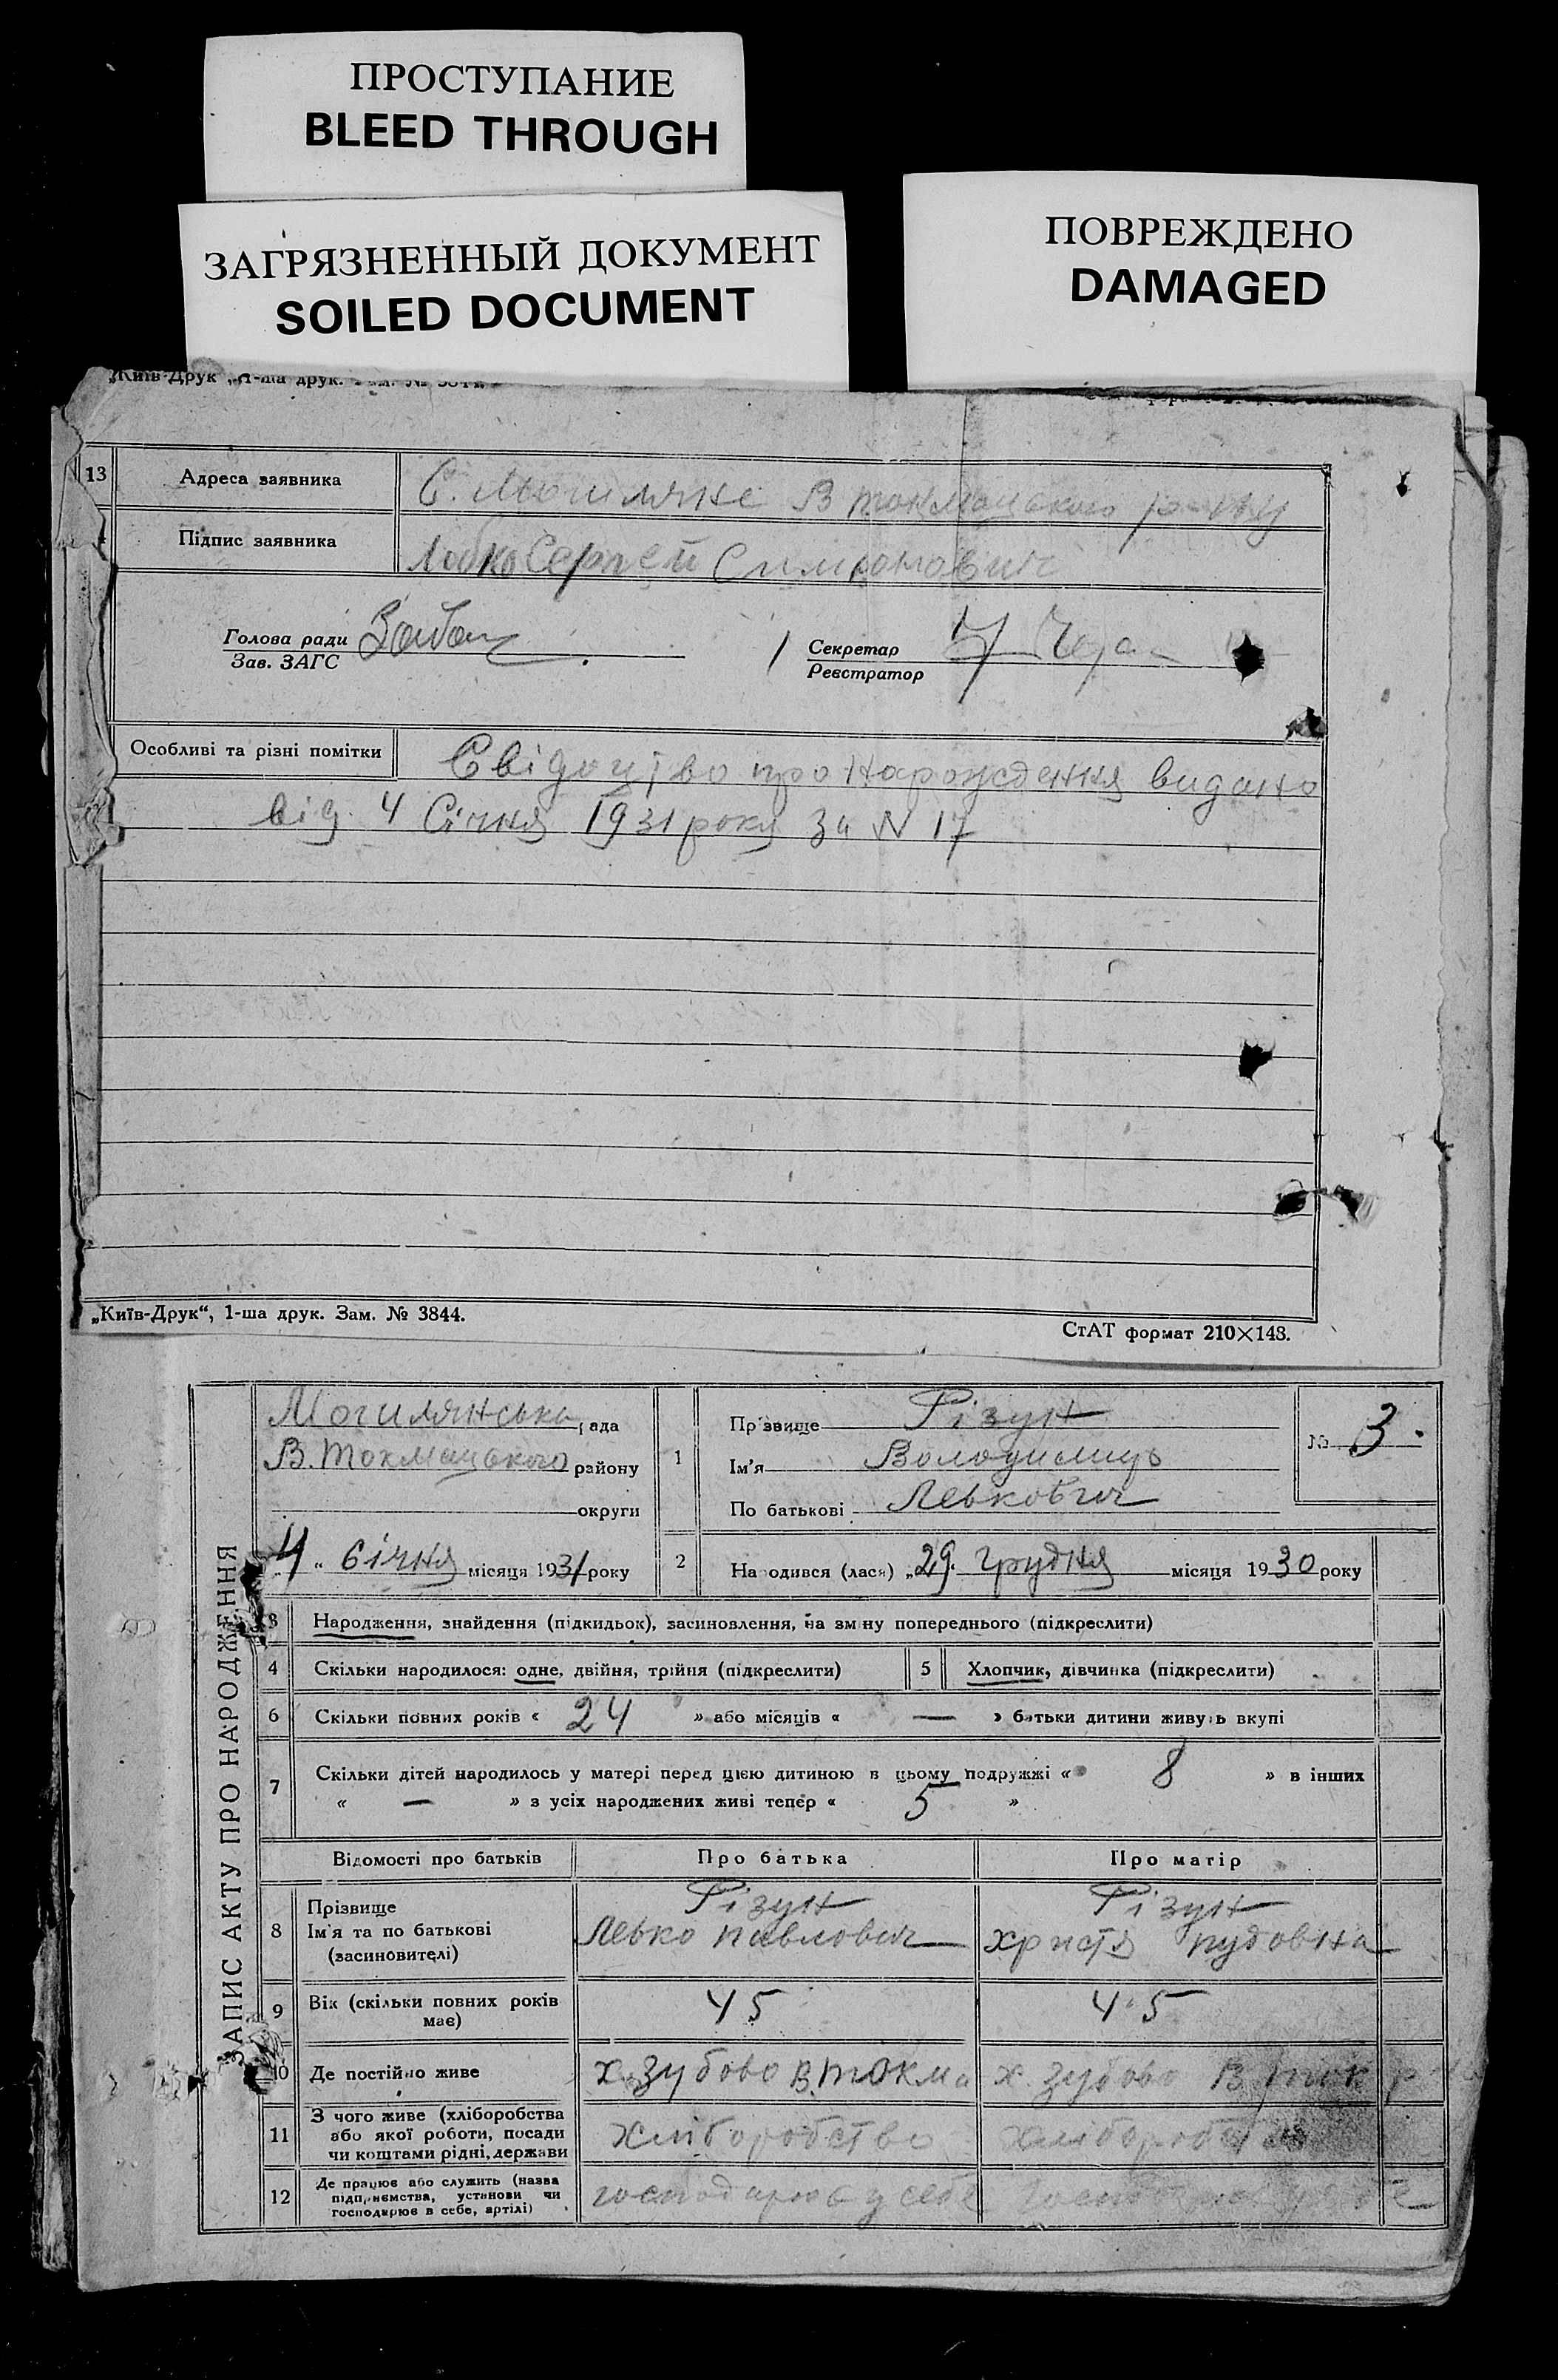 ПРОСТУПАНИЕ
BLEED THROUGH
ЗАГРЯЗНЕННЫЙ ДОКУМЕНТ
SOILED DOCUMENT
ПОВРЕЖДЕНО
DAMAGED
„Київ-Друк", 1-ша друк. № 3844.
13 Адреса заявника С. Могиляне В Токмацького
Підпис заявника Лобко Сергей Симонович
Голова ради
Зав. ЗАГС
Секретар
Реєстратор
Особливі та різні помітки Свідоцтво про Народження видано
від 4 Січня 1931 року За N 17
„Київ-Друк", 1-ша друк. Зам. № 3844.
СтАТ формат 210×148.
ЗАПИС АКТУ ПРО НАРОДЖЕННЯ
Могилянська рада
В. Токмацького району
округи
„4" Січня місяця 1931 року
1 Прізвище Різун
Ім'я Володимир
По батькові Левкович
№ 3.
2 Народився (лася) „29. грудня місяця 1930 року
3 Народження, знайдення (підкидьок), засиновлення, на зміну попереднього (підкреслити)
4 Скільки народилося: одне, двійня, трійня (підкреслити) 5 Хлопчик, дівчинка (підкреслити)
6 Скільки повних років « 24 » або місяців « — » батьки дитини живуть вкупі
7 Скільки дітей народилось у матері перед цією дитиною в цьому подружжі « 8 » в інших
« — » з усіх народжених живі тепер « 5 »
Відомості про батьків Про батька Про матір
8 Прізвище
Ім'я та по батькові
(засиновителі)
Різун
Левко Павлович
Різун
Христя
9 Вік (скільки повних років
має)
45 45
10 Де постійно живе х. Зубово В. Токма х. Зубово В Ток р
11 З чого живе (хліборобства
або якої роботи, посади
чи коштами рідні, держави
Хліборобство
12 Де працює або служить (назва
підприємства, установи чи
господарює в себе, артілі)
господарює у себе